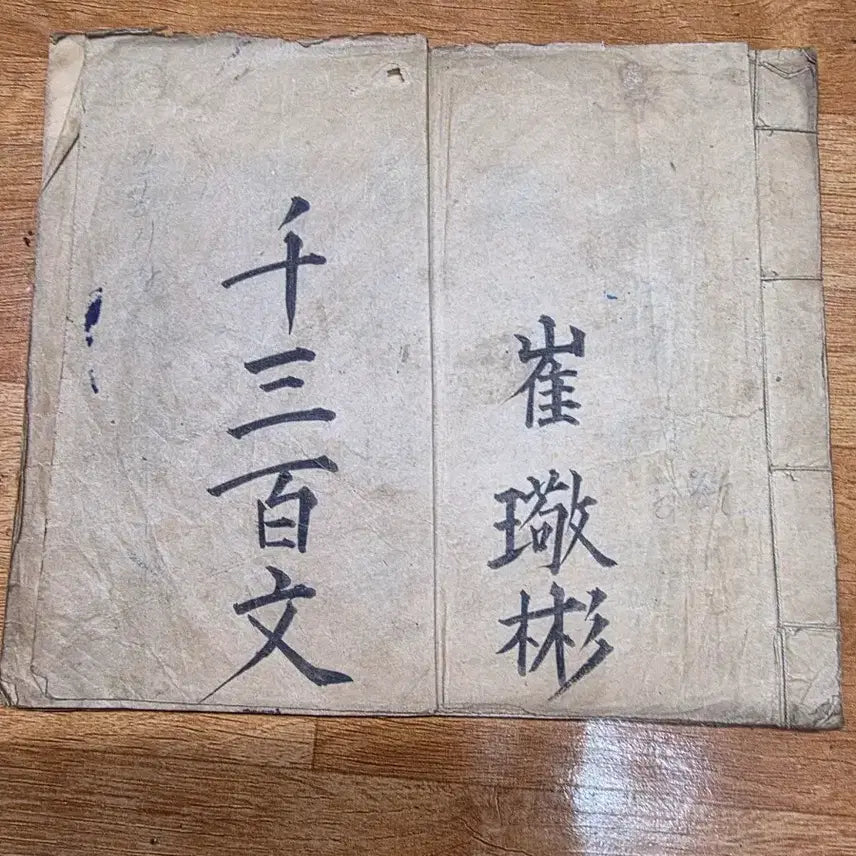 崔璥彬
千三百文